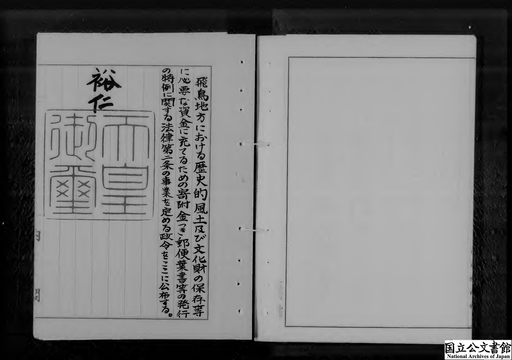 飛鳥地方における歴史的風土及び文化財の保存等
に必要な資金に充てるための寄附金つき郵便葉書等の発行
の特例に関する法律第二条の事業を定める政令をここに公布する。
裕仁
天皇
御璽
国立公文書館
National Archives of Japan